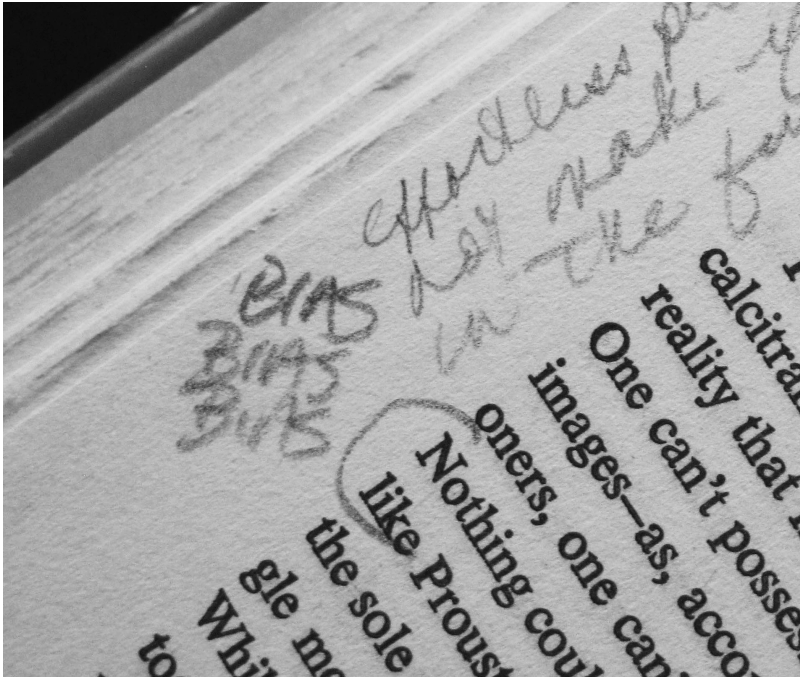 effortless
not make
in the
BIAS
BIAS
BIAS
calcitra
reality that
One can't posses
images—as, acco
oners, one can
Nothing coul
like Proust
the sole
gle mo
Whil
to